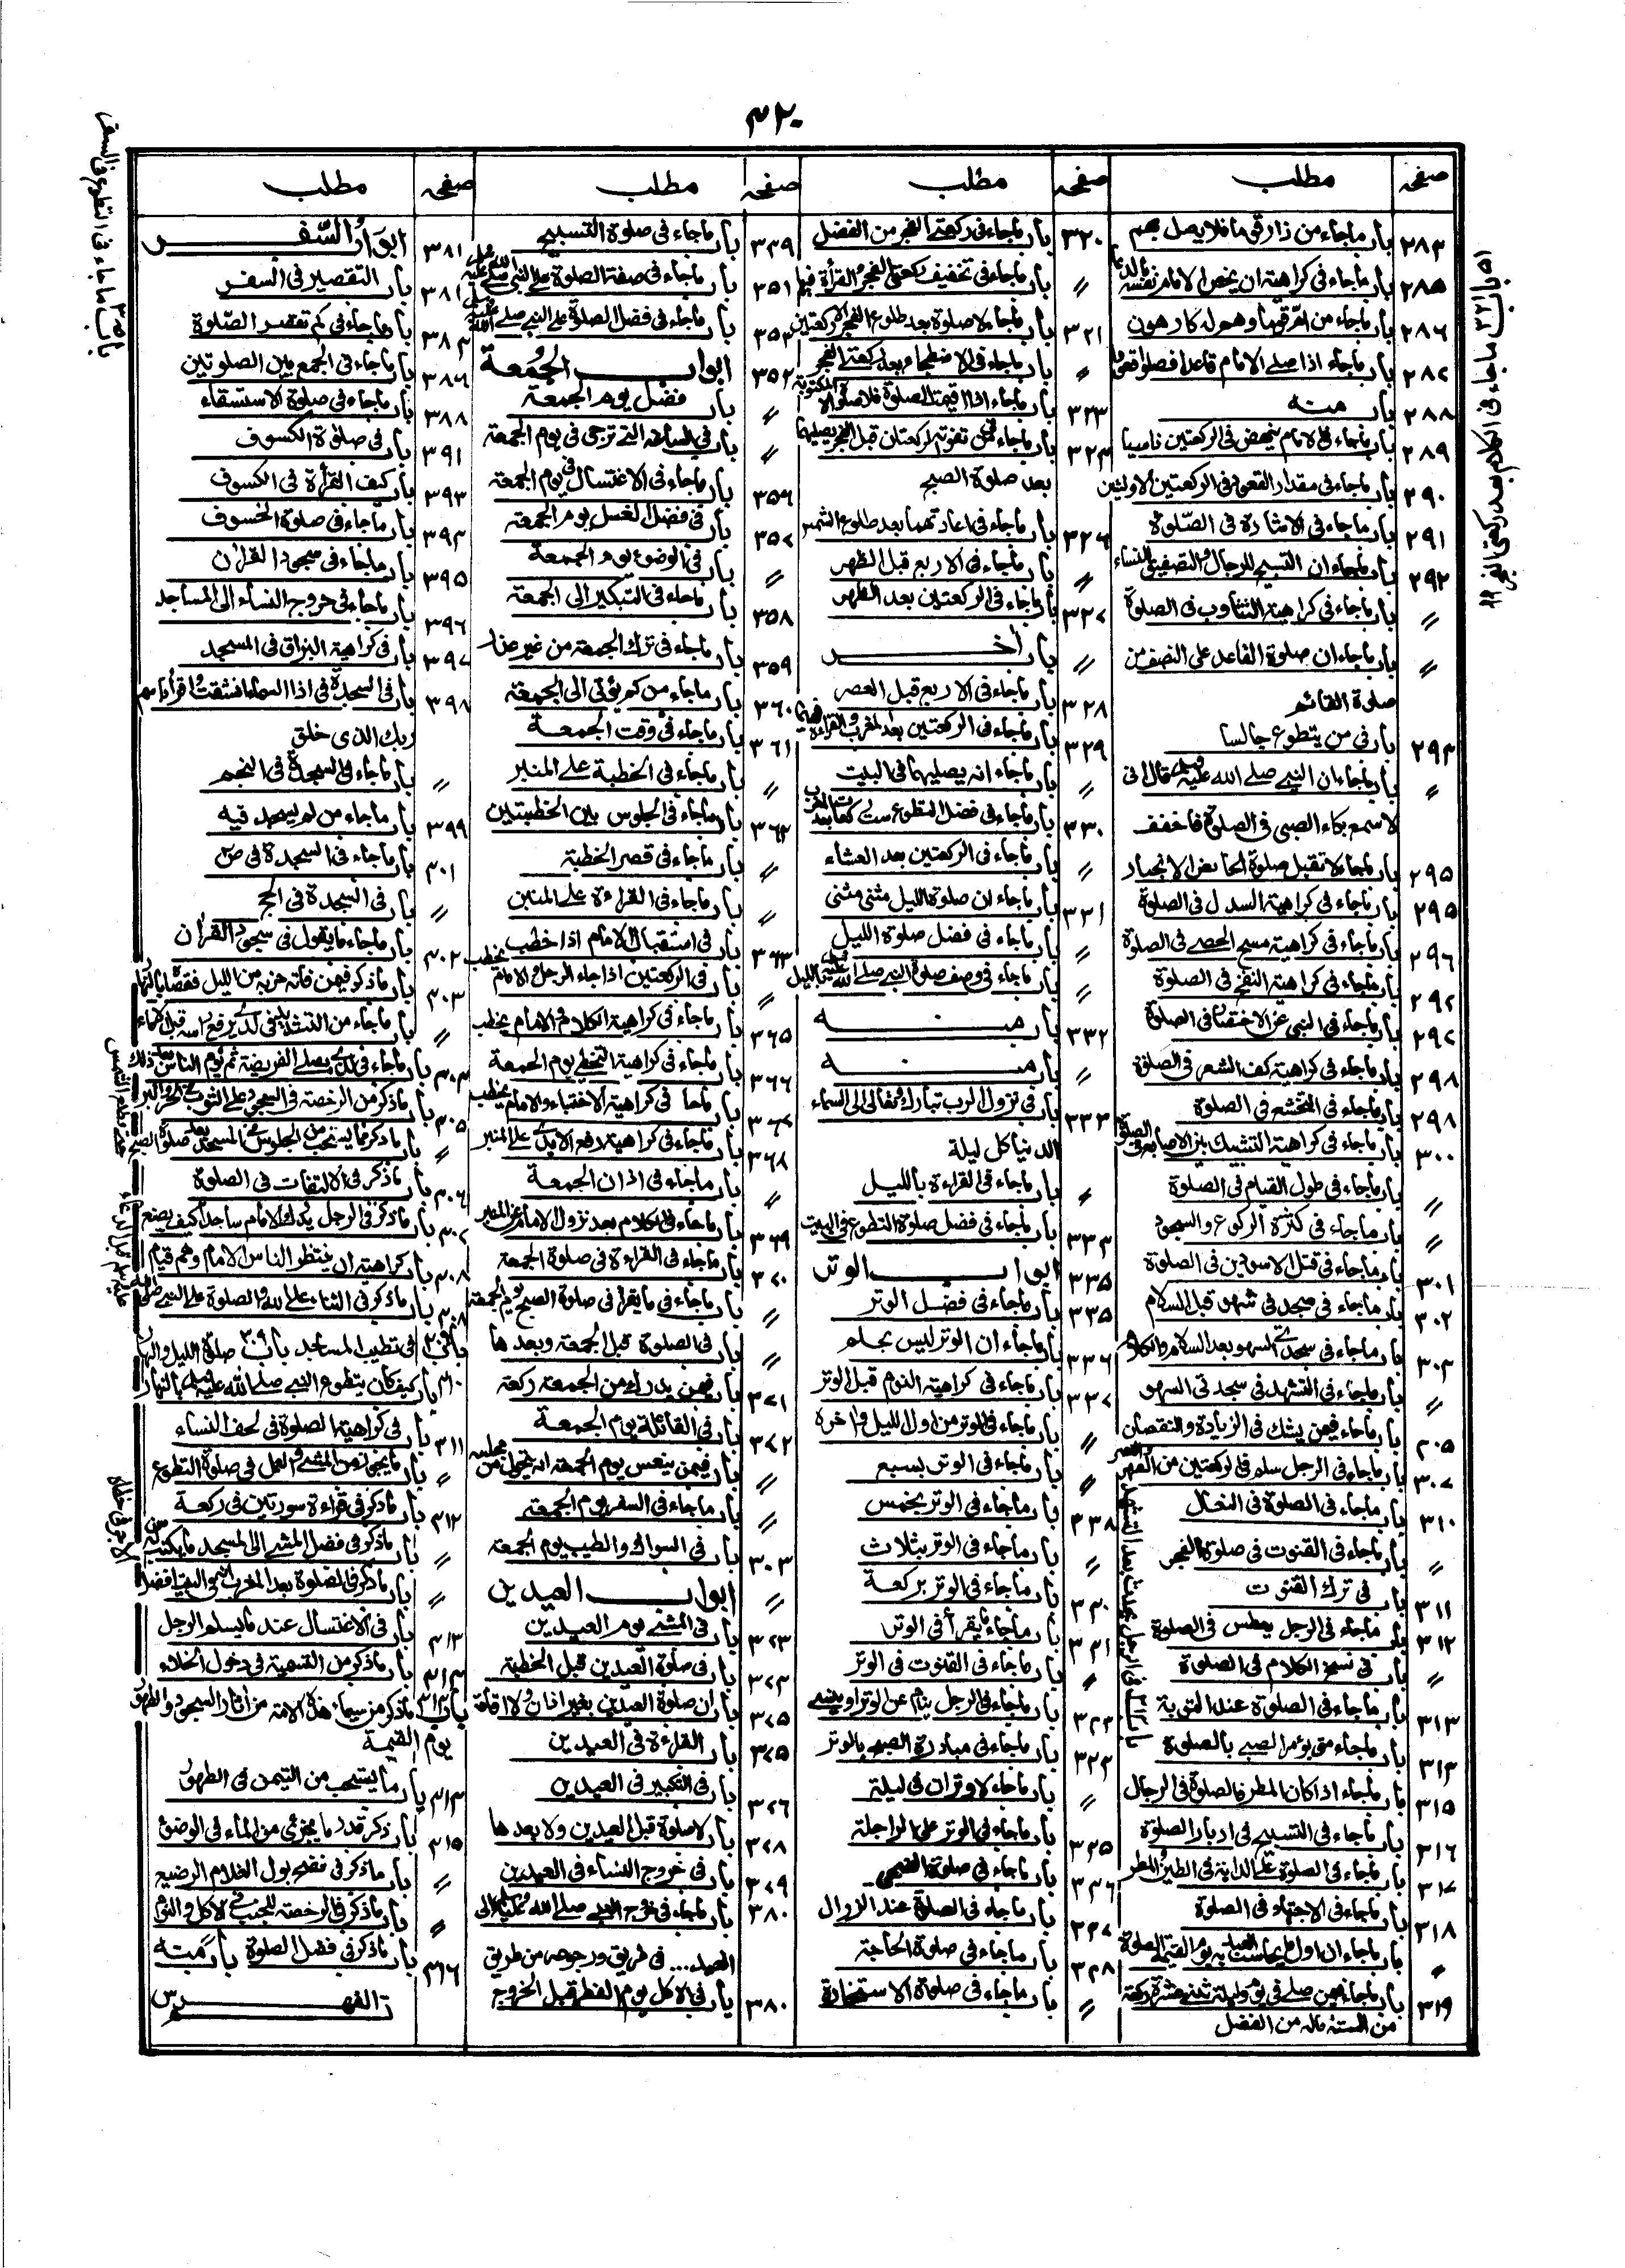 ۴۲۰
صفحہ مطلب
۲۸۴ باب ماجاء من زار قوما فلا يصل بهم
۲۸۵ باب ماجاء فى كراهية ان يخص الامام نفسه بالدعاء
۲۸۶ باب ماجاء من ام قوما وهم له كارهون
۲۸۷ باب ماجاء اذا صلے الامام قاعدا فصلوا قعودا
۲۸۸ باب منه
۲۸۹ باب ماجاء فى الامام ينهض فى الركعتين ناسيا
۲۹۰ باب ماجاء فى مقدار القعود فى الركعتين الاوليين
۲۹۱ باب ماجاء فى الاشارة فى الصلوة
۲۹۲ باب ماجاء ان التسبيح للرجال والتصفيق للنساء
〃 باب ماجاء فى كراهية التثاوب فى الصلوة
〃 باب ماجاء ان صلوة القاعد على النصف من
صلوة القائم
۲۹۳ باب فى من يتطوع جالسا
〃 باب ماجاء ان النبى صلے الله عليه وسلم قال انى
لاسمع بكاء الصبى فى الصلوة فاخفف
۲۹۵ باب ماجاء لا تقبل صلوة الحائض الا بخمار
۲۹۵ باب ماجاء فى كراهية السدل فى الصلوة
۲۹۶ باب ماجاء فى كراهية مسح الحصے فى الصلوة
۲۹۷ باب ماجاء فى كراهية النفخ فى الصلوة
۲۹۷ باب ماجاء فى النهى عن الاختصار فى الصلوة
۲۹۸ باب ماجاء فى كراهية كف الشعر فى الصلوة
۲۹۸ باب ماجاء فى التخشع فى الصلوة
۳۰۰ باب ماجاء فى كراهية التشبيك بين الاصابع فى الصلوة
〃 باب ماجاء فى طول القيام فى الصلوة
〃 باب ماجاء فى كثرة الركوع والسجود
۳۰۱ باب ماجاء فى قتل الاسودين فى الصلوة
۳۰۲ باب ماجاء فى سجدتى السهو قبل السلام
۳۰۳ باب ماجاء فى سجدتى السهو بعد السلام والكلام
〃 باب ماجاء فى التشهد فى سجدتى السهو
۳۰۵ باب ماجاء فيمن يشك فى الزيادة والنقصان
۳۰۷ باب ماجاء فى الرجل يسلم فى الركعتين من الظهر والعصر
۳۱۰ باب ماجاء فى الصلوة فى النعال
〃 باب ماجاء فى القنوت فى صلوة الفجر
۳۱۱ باب فى ترك القنوت
۳۱۲ باب ماجاء فى الرجل يعطس فى الصلوة
〃 باب فى نسخ الكلام فى الصلوة
۳۱۳ باب ماجاء فى الصلوة عند التوبة
۳۱۴ باب ماجاء متى يؤمر الصبى بالصلوة
۳۱۵ باب ماجاء اذا كان المطر فالصلوة فى الرحال
۳۱۶ باب ماجاء فى التسبيح فى ادبار الصلوة
۳۱۷ باب ماجاء فى الصلوة على الدابة فى الطين والمطر
۳۱۸ باب ماجاء فى الاجتهاد فى الصلوة
〃 باب ماجاء ان اول ما يحاسب به العبد يوم القيمة الصلوة
۳۱۹ باب ماجاء فيمن صلے فى يوم وليلة ثنتى عشرة ركعة
من السنة ماله من الفضل
صفحہ مطلب
۳۲۰ باب ماجاء فى ركعتى الفجر من الفضل
〃 باب ماجاء فى تخفيف ركعتى الفجر والقرأة فيهما
۳۲۱ باب ماجاء لا صلوة بعد طلوع الفجر الا ركعتين
〃 باب ماجاء فى الاضطجاع بعد ركعتى الفجر
۳۲۳ باب ماجاء اذا اقيمت الصلوة فلا صلوة الا المكتوبة
۳۲۴ باب ماجاء فى من تفوته الركعتان قبل الفجر يصليهما
بعد صلوة الصبح
۳۲۶ باب ماجاء فى اعادتهما بعد طلوع الشمس
〃 باب ماجاء فى الاربع قبل الظهر
۳۲۷ باب ماجاء فى الركعتين بعد الظهر
〃 باب آخر
۳۲۸ باب ماجاء فى الاربع قبل العصر
۳۲۹ باب ماجاء فى الركعتين بعد المغرب والقراءة فيهما
〃 باب ماجاء انه يصليهما فى البيت
۳۳۰ باب ماجاء فى فضل التطوع ست ركعات بعد المغرب
〃 باب ماجاء فى الركعتين بعد العشاء
۳۳۱ باب ماجاء ان صلوة الليل مثنى مثنى
〃 باب ماجاء فى فضل صلوة الليل
〃 باب ماجاء فى وصف صلوة النبى صلے الله عليه وسلم بالليل
۳۳۲ باب منه
〃 باب منه
۳۳۳ باب فى نزول الرب تبارك وتعالى الى السماء
الدنيا كل ليلة
〃 باب ماجاء فى القراءة بالليل
۳۳۴ باب ماجاء فى فضل صلوة التطوع فى البيت
۳۳۵ ابواب الوتر
۳۳۵ باب ماجاء فى فضل الوتر
۳۳۶ باب ماجاء ان الوتر ليس بحتم
۳۳۷ باب ماجاء فى كراهية النوم قبل الوتر
〃 باب ماجاء فى الوتر من اول الليل وآخره
〃 باب ماجاء فى الوتر بسبع
۳۳۸ باب ماجاء فى الوتر بخمس
〃 باب ماجاء فى الوتر بثلاث
۳۴۰ باب ماجاء فى الوتر بركعة
۳۴۱ باب ماجاء ما يقرأ فى الوتر
〃 باب ماجاء فى القنوت فى الوتر
۳۴۲ باب ماجاء فى الرجل ينام عن الوتر او ينسى
۳۴۳ باب ماجاء فى مبادرة الصبح بالوتر
〃 باب ماجاء لا وتران فى ليلة
۳۴۵ باب ماجاء فى الوتر على الراحلة
۳۴۶ باب ماجاء فى صلوة الضحى
۳۴۷ باب ماجاء فى الصلوة عند الزوال
۳۴۸ باب ماجاء فى صلوة الحاجة
〃 باب ماجاء فى صلوة الاستخارة
صفحہ مطلب
۳۴۹ باب ماجاء فى صلوة التسبيح
۳۵۱ باب ماجاء فى صفة الصلوة على النبى صلى الله عليه
۳۵۲ باب ماجاء فى فضل الصلوة على النبى صلے الله عليه
۳۵۴ ابواب الجمعة
〃 باب فضل يوم الجمعة
〃 باب فى الساعة التى ترجى فى يوم الجمعة
۳۵۶ باب ماجاء فى الاغتسال فى يوم الجمعة
۳۵۷ باب فى فضل الغسل يوم الجمعة
〃 باب فى الوضوء يوم الجمعة
۳۵۸ باب ماجاء فى التبكير الى الجمعة
۳۵۹ باب ماجاء فى ترك الجمعة من غير عذر
۳۶۰ باب ماجاء من كم يؤتى الى الجمعة
۳۶۱ باب ماجاء فى وقت الجمعة
〃 باب ماجاء فى الخطبة على المنبر
۳۶۲ باب ماجاء فى الجلوس بين الخطبتين
〃 باب ماجاء فى قصر الخطبة
〃 باب ماجاء فى القراءة على المنبر
۳۶۳ باب فى استقبال الامام اذا خطب
〃 باب فى الركعتين اذا جاء الرجل والامام يخطب
۳۶۵ باب ماجاء فى كراهية الكلام والامام يخطب
۳۶۶ باب ماجاء فى كراهية التخطى يوم الجمعة
۳۶۷ باب ماجاء فى كراهية الاحتباء والامام يخطب
۳۶۸ باب ماجاء فى كراهية رفع الايدى على المنبر
〃 باب ماجاء فى اذان الجمعة
۳۶۹ باب ماجاء فى الكلام بعد نزول الامام من المنبر
۳۷۰ باب ماجاء فى القراءة فى صلوة الجمعة
〃 باب ماجاء فى ما يقرأ فى صلوة الصبح يوم الجمعة
〃 باب فى الصلوة قبل الجمعة وبعدها
۳۷۱ باب فيمن يدرك من الجمعة ركعة
۳۷۲ باب فى القائلة يوم الجمعة
〃 باب فيمن ينعس يوم الجمعة انه يتحول من مجلسه
〃 باب ماجاء فى السفر يوم الجمعة
۳۰۳ باب فى السواك والطيب يوم الجمعة
〃 ابواب العيدين
۳۷۳ باب فى المشى يوم العيدين
۳۷۴ باب فى صلوة العيدين قبل الخطبة
۳۷۵ باب ان صلوة العيدين بغير اذان ولا اقامة
۳۷۵ باب القراءة فى العيدين
۳۷۶ باب فى التكبير فى العيدين
۳۷۸ باب لا صلوة قبل العيدين ولا بعدها
۳۷۹ باب فى خروج النساء فى العيدين
۳۸۰ باب ماجاء فى خروج النبى صلے الله عليه وسلم الى
العيد... فى طريق ورجوعه من طريق
۳۸۰ باب فى الاكل يوم الفطر قبل الخروج
صفحہ مطلب
۳۸۱ ابواب السفر
۳۸۱ باب التقصير فى السفر
۳۸۴ باب ماجاء فى كم تقصر الصلوة
۳۸۶ باب ماجاء فى الجمع بين الصلوتين
۳۸۸ باب ماجاء فى صلوة الاستسقاء
۳۹۱ باب فى صلوة الكسوف
۳۹۳ باب كيف القرأة فى الكسوف
۳۹۴ باب ماجاء فى صلوة الخسوف
۳۹۵ باب ماجاء فى سجود القرآن
۳۹۶ باب ماجاء فى خروج النساء الى المساجد
۳۹۷ باب فى كراهية البزاق فى المسجد
۳۹۸ باب فى السجدة فى اذا السماء انشقت واقرأ باسم
ربك الذى خلق
〃 باب ماجاء فى السجدة فى النجم
۳۹۹ باب ماجاء من لم يسجد فيه
۴۰۱ باب ماجاء فى السجدة فى ص
〃 باب فى السجدة فى الحج
۴۰۲ باب ماجاء ما يقول فى سجود القرآن
۴۰۳ باب ماذكر فيمن فاته حزبه من الليل فقضاه بالنهار
〃 باب ماجاء من التشديد فى الذى يرفع راسه قبل الامام
۴۰۴ باب ماجاء فى الذى يصلى الفريضة ثم يؤم الناس بعد ذلك
۴۰۵ باب ماذكر من الرخصة فى السجود على الثوب فى الحر والبرد
〃 باب ماذكر مما يستحب من الجلوس فى المسجد بعد صلوة الصبح
حتى تطلع الشمس
۴۰۶ باب ماذكر فى الالتفات فى الصلوة
۴۰۷ باب ماذكر فى الرجل يدرك الامام ساجدا كيف يصنع
۴۰۸ باب كراهية ان ينتظر الناس الامام وهم قيام
۴۰۸ باب ماذكر فى الثناء على الله والصلوة على النبى صلى الله
عليه وسلم قبل الدعاء
باب فى تطييب المساجد باب ۴۰۹ صلوة الليل والنهار
۴۱۰ باب كيف كان يتطوع النبى صلے الله عليه وسلم بالنهار
۴۱۱ باب فى كراهية الصلوة فى لحف النساء
〃 باب ما يجوز من المشى والعمل فى صلوة التطوع
۴۱۲ باب ماذكر فى قراءة سورتين فى ركعة
〃 باب ماذكر فى فضل المشى الى المسجد وما يكتب له من
الاجر فى خطاه
〃 باب ماذكر فى الصلوة بعد المغرب انه فى البيت افضل
۴۱۳ باب فى الاغتسال عند ما يسلم الرجل
۴۱۴ باب ماذكر من التسمية فى دخول الخلاء
باب ماذكر من سيماء هذه الامة من آثار السجود والطهور
يوم القيمة
۴۱۴ باب ما يستحب من التيمن فى الطهور
۴۱۵ باب ذكر قدر ما يجزئ من الماء فى الوضوء
〃 باب ماذكر فى نضح بول الغلام الرضيع
〃 باب ماذكر فى الرخصة للجنب فى الاكل والنوم
۴۱۶ باب ماذكر فى فضل الصلوة باب منه
تم الفهرس
باب ماجاء فى التطوع فى السفر
باب ماجاء فى الكلام بعد ركعتى الفجر
باب فى الرجل يحدث بعد التشهد